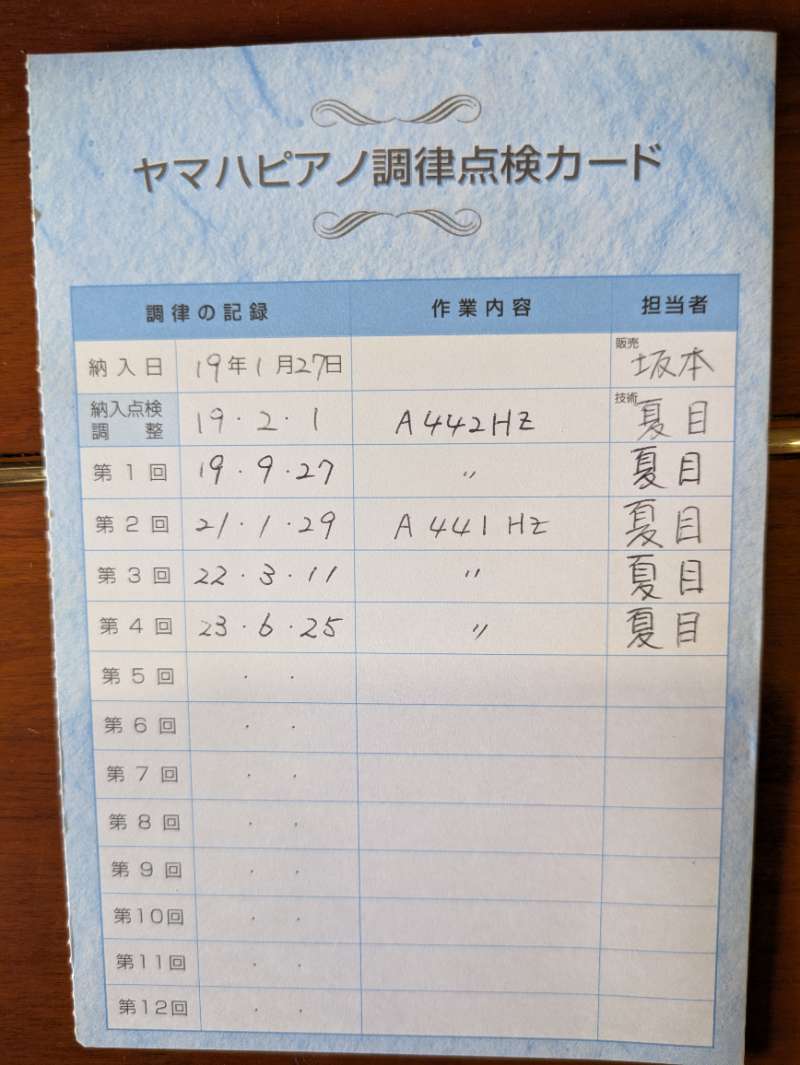 ヤマハピアノ調律点検カード
調律の記録 作業内容 担当者
納入日 19年1月27日 販売 坂本
納入点検調整 19・2・1 A442HZ 技術 夏目
第1回 19・9・27 〃 夏目
第2回 21・1・29 A441HZ 夏目
第3回 22・3・11 〃 夏目
第4回 23・6・25 〃 夏目
第5回 ・ ・
第6回 ・ ・
第7回 ・ ・
第8回 ・ ・
第9回 ・ ・
第10回 ・ ・
第11回 ・ ・
第12回 ・ ・